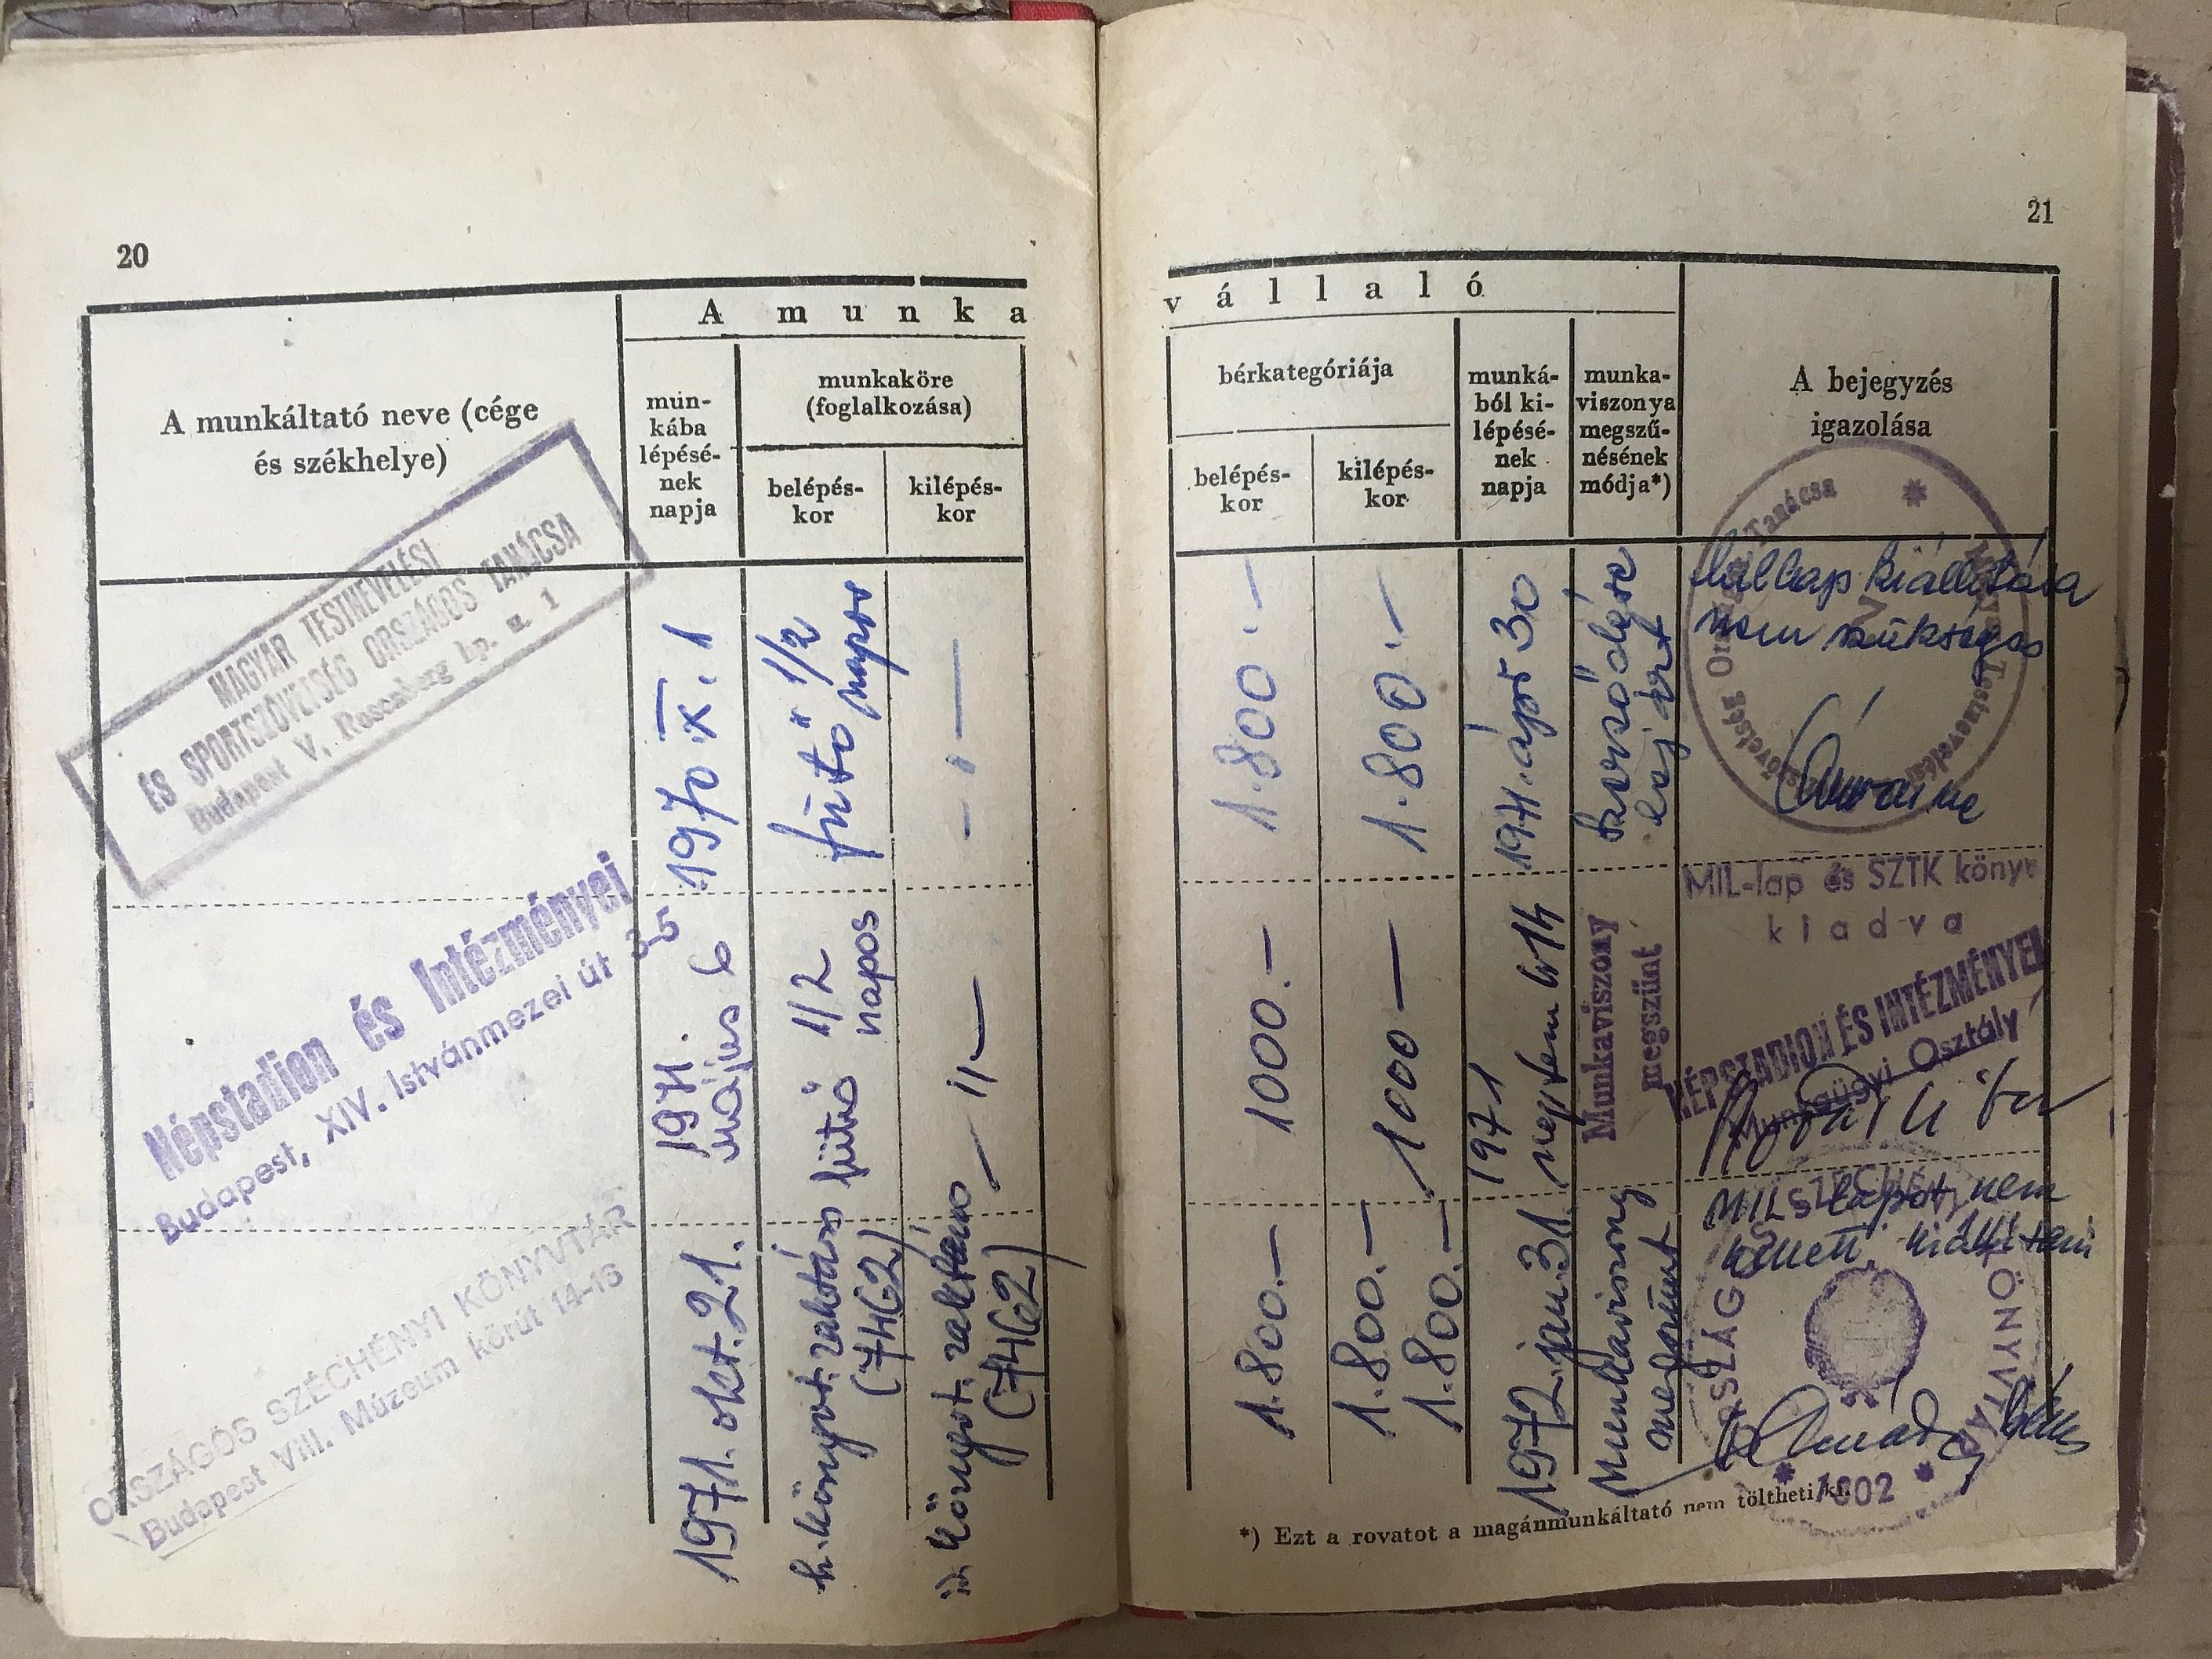 20
A munka
A munkáltató neve (cége
és székhelye)
mun-
kába
lépésé-
nek
napja
munkaköre
(foglalkozása)
belépés-
kor
kilépés-
kor
MAGYAR TESTNEVELÉSI
ÉS SPORTSZÖVETSÉG ORSZÁGOS TANÁCSA
Budapest V, Rosenberg hp. u. 1
1970 X. 1
fűtő" 1/2
napos
Népstadion és Intézményei
Budapest, XIV. Istvánmezei út 3-5
1971.
május 6
fűtő 1/2
napos
— 11 —
ORSZÁGOS SZÉCHÉNYI KÖNYVTÁR
Budapest VIII. Múzeum körút 14-16
1971. okt. 21.
könyvt. raktáros
(7462)
könyvt. raktáros
(7462)
21
vállaló
bérkategóriája
belépés-
kor
kilépés-
kor
munká-
ból ki-
lépésé-
nek
napja
munka-
viszonya
megszű-
nésének
módja*)
A bejegyzés
igazolása
1.800.—
1.800.—
1971. ápr 30
szerződése
lejárt
kiállítása
nem szükséges
1000.—
1000—
1971
Munkaviszony
megszünt
MIL-lap és SZTK könyv
kiadva
NÉPSTADION ÉS INTÉZMÉNYEI
Munkaügyi Osztály
1.800.—
1.800.—
1.800.—
1972. jan. 31.
Munkaviszony
megszünt
MIL lapot nem
kellett kiállítani
1002
*) Ezt a rovatot a magánmunkáltató nem töltheti ki.